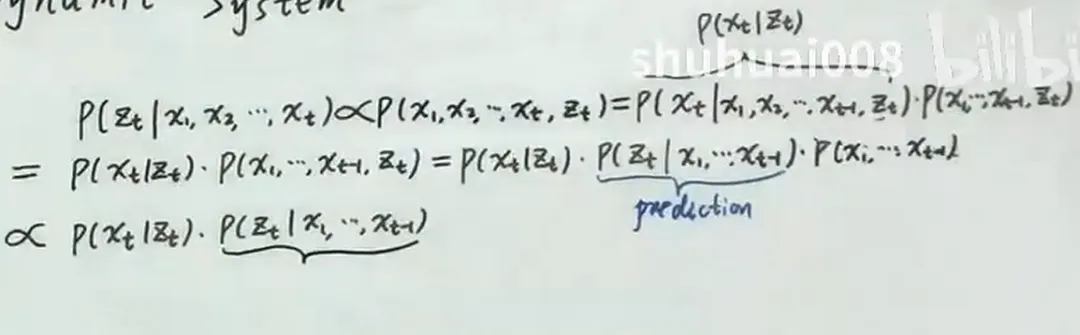 System
P(xₜ|zₜ)
shuhuai008 bilibi
P(zₜ|x₁, x₂, ⋯, xₜ)∝P(x₁, x₂, ⋯ xₜ, zₜ)=P(xₜ|x₁, x₂, ⋯, xₜ₋₁, zₜ)·P(x₁, ⋯, xₜ₋₁, zₜ)
= P(xₜ|zₜ)·P(x₁, ⋯, xₜ₋₁, zₜ) = P(xₜ|zₜ)·P(zₜ|x₁, ⋯, xₜ₋₁)·P(x₁, ⋯, xₜ₋₁)
prediction
∝ P(xₜ|zₜ)·P(zₜ|x₁, ⋯, xₜ₋₁)